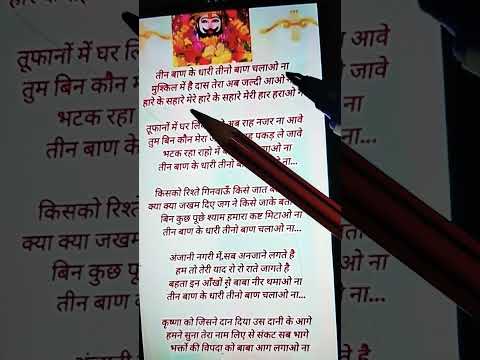 तीन बाण के धारी तीनो बाण चलाओ ना
मुश्किल में है दास तेरा अब जल्दी आओ
हारे के सहारे मेरे हारे के सहारे मेरी हार हराओ
तूफानों में घर अब राह नजर ना आवे
तुम बिन कौन मेरा पकड़ ले जावे
भटक रहा राहो में
तीन बाण के धारी तीनो बाण चलाओ ना...
किसको रिश्ते गिनवाऊँ किसे जात
क्या क्या जखम दिए जग ने किसे जाके
बिन कुछ पूछे श्याम हमारा कष्ट मिटाओ ना
तीन बाण के धारी तीनो बाण चलाओ ना...
अंजानी नगरी में,सब अनजाने लगते है
हम तो तेरी याद रो रो राते जागते है
बहता इन आँखों से बाबा नीर थमाओ ना
तीन बाण के धारी तीनो बाण चलाओ ना...
कृष्णा को जिसने दान दिया उस दानी के आगे
हमने सुना तेरा नाम लिए से संकट सब भागे
भक्तों की विपदा को बाबा आग लगाओ ना